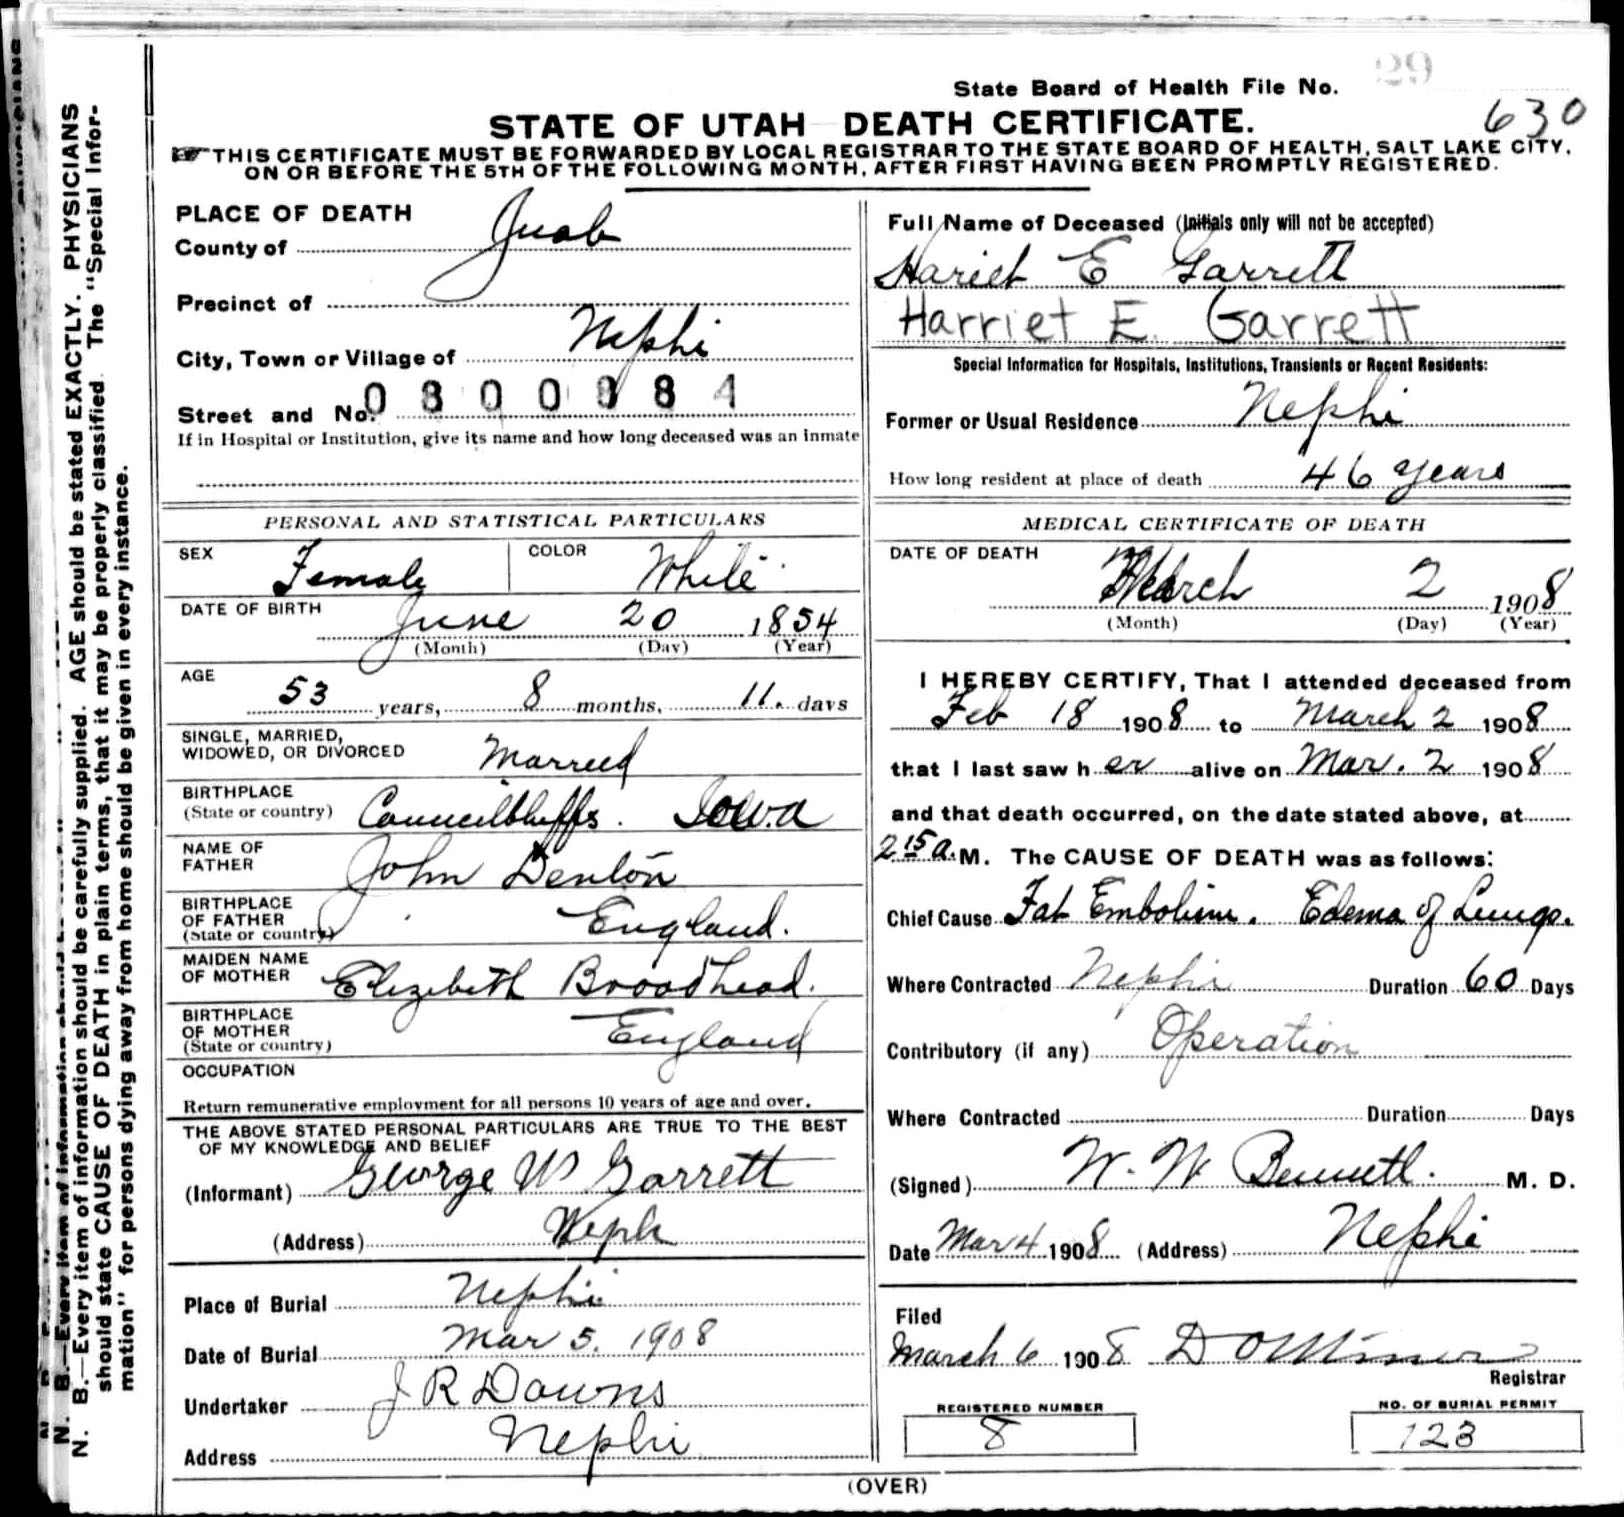 N. B.—Every item of information should be carefully supplied. AGE should be stated EXACTLY. PHYSICIANS
should state CAUSE OF DEATH in plain terms, that it may be properly classified. The "Special Infor-
mation" for persons dying away from home should be given in every instance.
29
State Board of Health File No.
630
STATE OF UTAH DEATH CERTIFICATE.
THIS CERTIFICATE MUST BE FORWARDED BY LOCAL REGISTRAR TO THE STATE BOARD OF HEALTH, SALT LAKE CITY,
ON OR BEFORE THE 5TH OF THE FOLLOWING MONTH, AFTER FIRST HAVING BEEN PROMPTLY REGISTERED.
PLACE OF DEATH
County of Juab
Precinct of
City, Town or Village of Nephi
Street and No.
If in Hospital or Institution, give its name and how long deceased was an inmate
PERSONAL AND STATISTICAL PARTICULARS
SEX Female COLOR White
DATE OF BIRTH June 20 1854
(Month) (Day) (Year)
AGE
53 years, 8 months, 11. days
SINGLE, MARRIED,
WIDOWED, OR DIVORCED Married
BIRTHPLACE
(State or country) Councilbluffs. Iowa
NAME OF
FATHER John Denton
BIRTHPLACE
OF FATHER England.
(State or country)
MAIDEN NAME
OF MOTHER Elizibeth Broadhead.
BIRTHPLACE
OF MOTHER England
(State or country)
OCCUPATION
Return remunerative employment for all persons 10 years of age and over.
THE ABOVE STATED PERSONAL PARTICULARS ARE TRUE TO THE BEST
OF MY KNOWLEDGE AND BELIEF
(Informant) George W Garrett
(Address) Neph
Place of Burial Nephi
Date of Burial Mar 5. 1908
Undertaker J R Downs
Address Nephi
Full Name of Deceased (Initials only will not be accepted)
Hariet E Garrett
Harriet E. Garrett
Special Information for Hospitals, Institutions, Transients or Recent Residents:
Former or Usual Residence Nephi
How long resident at place of death 46 years
MEDICAL CERTIFICATE OF DEATH
DATE OF DEATH
March 2 1908
(Month) (Day) (Year)
I HEREBY CERTIFY, That I attended deceased from
Feb 18 1908 to March 2 1908
that I last saw her alive on Mar. 2 1908
and that death occurred, on the date stated above, at
2 15 a. M. The CAUSE OF DEATH was as follows:
Chief Cause Fat Embolism. Edema of Lungs.
Where Contracted Nephi Duration 60 Days
Contributory (if any) Operation
Where Contracted Duration Days
(Signed) W. W Bennett. M. D.
Date Mar 4 1908 (Address) Nephi
Filed
March 6 1908
Registrar
REGISTERED NUMBER
8
NO. OF BURIAL PERMIT
123
(OVER)